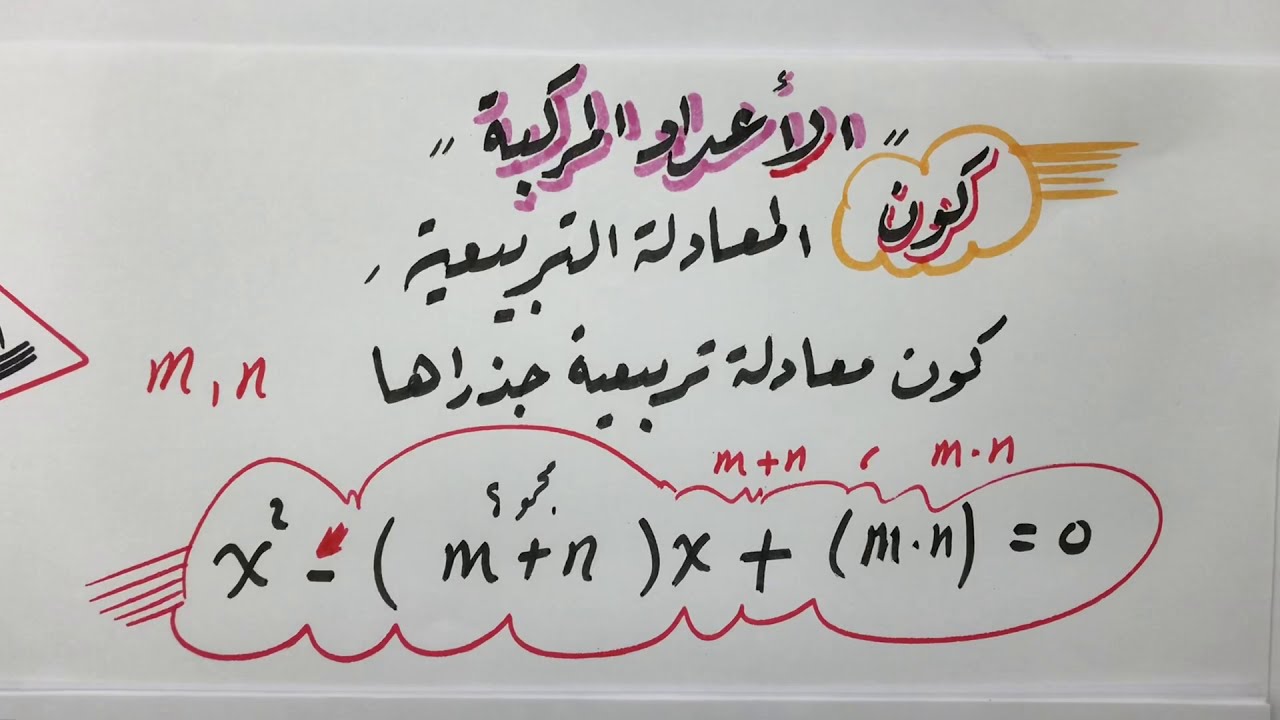 " الأعداد المركبة "
كون المعادلة التربيعية ,
كون معادلة تربيعية جذراها m , n
m+n , m.n
مجموع
x² - ( m+n )x + (m.n) = 0